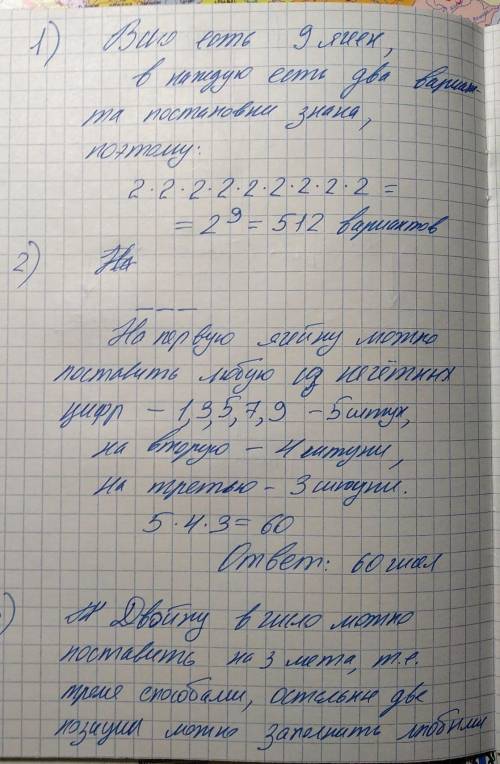 1) Всго есть 9 ячеек,
в каждую есть два вариан-
та постановки знака,
поэтому:
2·2·2·2·2·2·2·2·2 =
= 2⁹ = 512 вариантов
2) На
_ _ _
На первую ячейку можно
поставить любую из нечётных
цифр - 1, 3, 5, 7, 9 - 5 штук,
на вторую - 4 штуки,
на третью - 3 штуки.
5·4·3 = 60
Ответ: 60 чисел
) Двойку в число можно
поставить на 3 места, т.е.
тремя способами, остальные две
позиции можно заполнить любыми